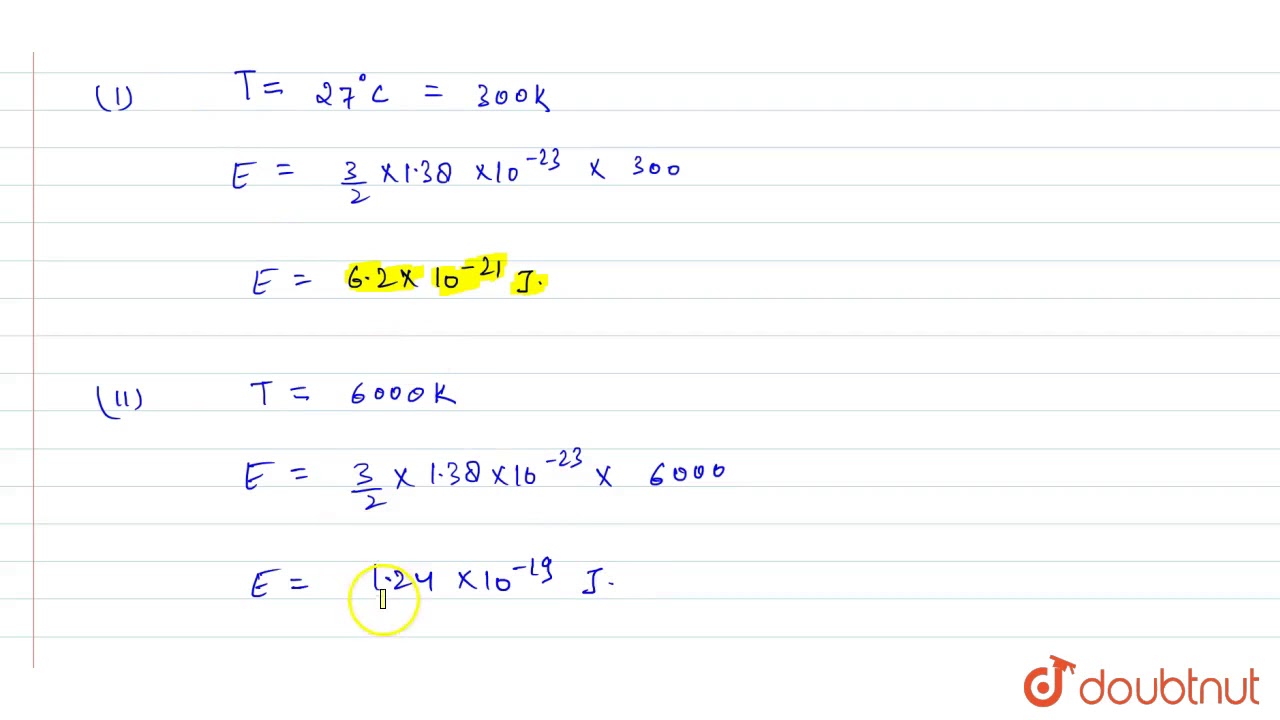 (I) T = 27°C = 300K
E = 3/2 × 1.38 × 10⁻²³ × 300
E = 6.2 × 10⁻²¹ J.
(II) T = 6000K
E = 3/2 × 1.38 × 10⁻²³ × 6000
E = 1.24 × 10⁻¹⁹ J.
doubtnut